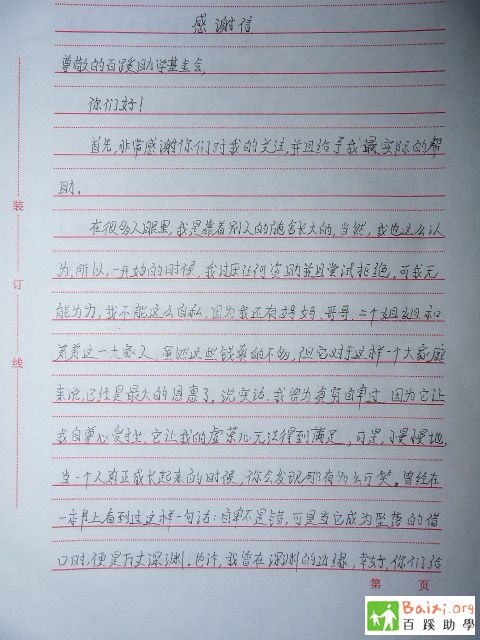 感谢信
尊敬的百蹊助学基金会,
你们好!
首先,非常感谢你们对我的关注,并且给予我最实际的帮
助。
在很多人眼里,我是靠着别人的施舍长大的,当然,我也这么认
为,所以,一开始的时候,我讨厌任何资助并且尝试拒绝,可我无
能为力,我不能这么自私,因为我还有妈妈,哥哥,二个姐姐和
弟弟这一大家人,虽然这些钱真的不够,但它对于这样一个大家庭
来说,已经是最大的恩惠了。说实话,我曾为贫穷自卑过,因为它让
我自尊心受挫,它让我的虚荣心无法得到满足,可是,慢慢地,
当一个人真正成长起来的时候,你会发现那有多么可笑。曾经在
一本书上看到过这样一句话:自卑不是错,可是当它成为坠落的借
口时,便是万丈深渊。也许,我曾在深渊的边缘,幸好,你们给
装
订
线
第 页
Baixi.org
百蹊助學